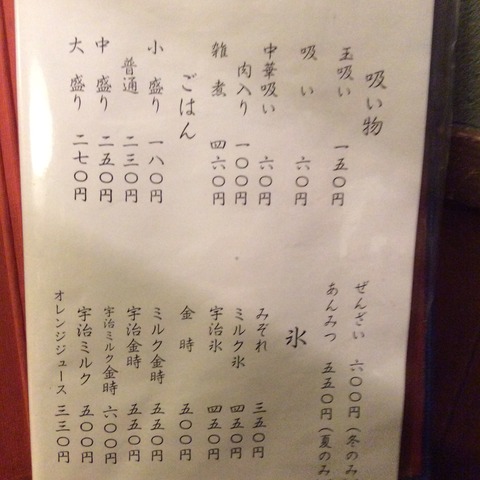 吸い物
玉吸い 一五〇円
吸い 六〇円
中華吸い 六〇円
肉入り 一〇〇円
雑煮 四六〇円
ごはん
小盛り 一八〇円
普通 二三〇円
中盛り 二五〇円
大盛り 二七〇円
ぜんざい 六〇〇円(冬のみ
あんみつ 五五〇円(夏のみ
氷
みぞれ 三五〇円
ミルク氷 四五〇円
宇治氷 四五〇円
金時 五〇〇円
ミルク金時 五五〇円
宇治金時 五五〇円
宇治ミルク金時 六〇〇円
宇治ミルク 五〇〇円
オレンジジュース 三三〇円